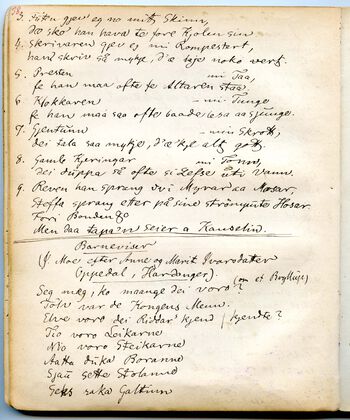 3. gjev eg no mitt Skinn,
dæ sko han hava te fore Kjolen sin
4. Skrivaren gjev eg mi Rompestert,
han skriv så mykje, d'æ noko vert.
5. Presten — mi Taa,
fe han maa ofte fe Altaren staa.
6. Klokkaren — mi Tunge
fe han maa saa ofte baade lesa aa sjunge.
7. Gjentunn — min Skrott,
dei tala saa mykje, d'æ kje alt gott.
8. Gamle Kjeringar — mi Tonn,
dei duppa så ofte si Lefse uti vann.
9. Reven han sprang ivi Myrar ca Mosar,
Toffa sprang etter på sine strömpute Hosar.
Fori Bonden
Men daa tapa'n Seier a Kanselin.
Barneviser
(J. Moe efter Anne og Marit Ivarsdøter
Oppedal, Hardanger).
Seg meg, ko maange dei voro? (om et Bryllup)
Tolv var de Kongens Menn.
Elve voro dei Riddar kjend / kjendte?
Tio voro Leikarne
Nio voro Steikarne
Aatta duka Boranne
Sjau sette Stolanne
Seks raka Galtinn